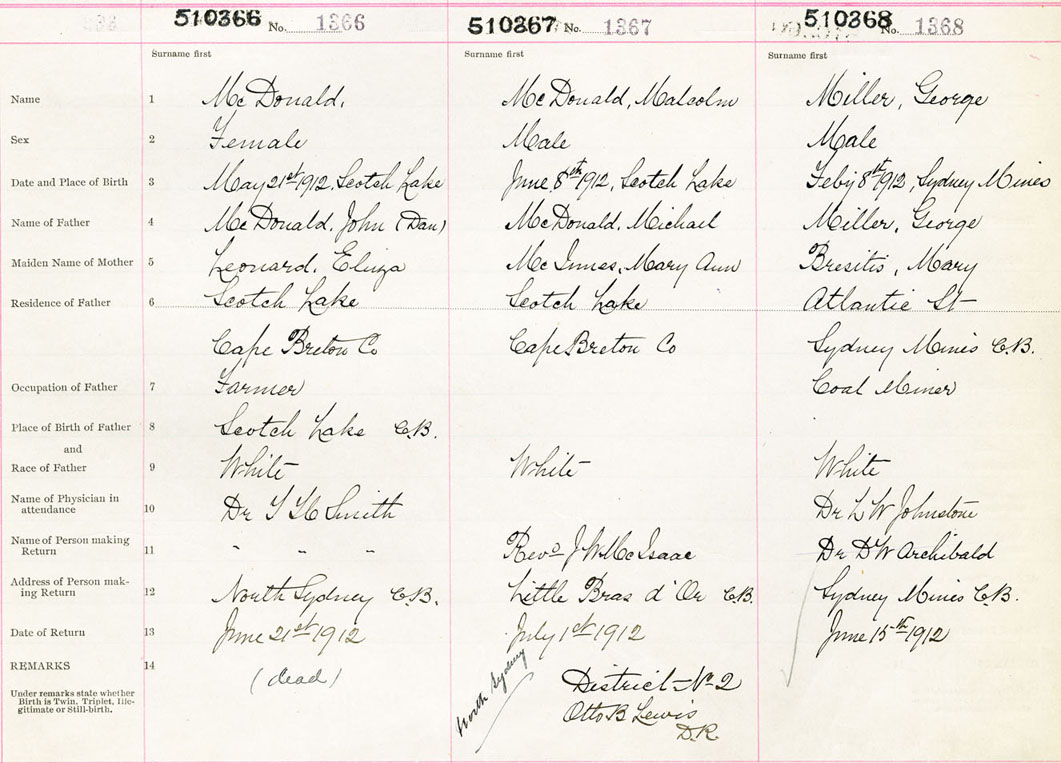 510366 No. 1366 510367 No. 1367 510368 No. 1368
Surname first Surname first Surname first
Name 1 McDonald, McDonald, Malcolm Miller, George
Sex 2 Female Male Male
Date and Place of Birth 3 May 21st 1912, Scotch Lake June 8th 1912, Scotch Lake Feby 8th 1912, Sydney Mines
Name of Father 4 McDonald, John (Dan) McDonald, Michael Miller, George
Maiden Name of Mother 5 Leonard, Eliza McInnes, Mary Ann Bresitis, Mary
Residence of Father 6 Scotch Lake Scotch Lake Atlantic St
Cape Breton Co Cape Breton Co Sydney Mines C.B.
Occupation of Father 7 Farmer Coal Miner
Place of Birth of Father 8 Scotch Lake C.B.
and
Race of Father 9 White White White
Name of Physician in
attendance 10 Dr Smith Dr L W Johnstone
Name of Person making
Return 11 " " " Revd J W McIsaac Dr D W Archibald
Address of Person mak-
ing Return 12 North Sydney C.B. Little Bras d'Or C.B. Sydney Mines C.B.
Date of Return 13 June 21st 1912 July 1st 1912 June 15th 1912
REMARKS 14 (dead) North Sydney District No 2
Under remarks state whether
Birth is Twin, Triplet, Ille-
gitimate or Still-birth.
Otto B Lewis
D.R.